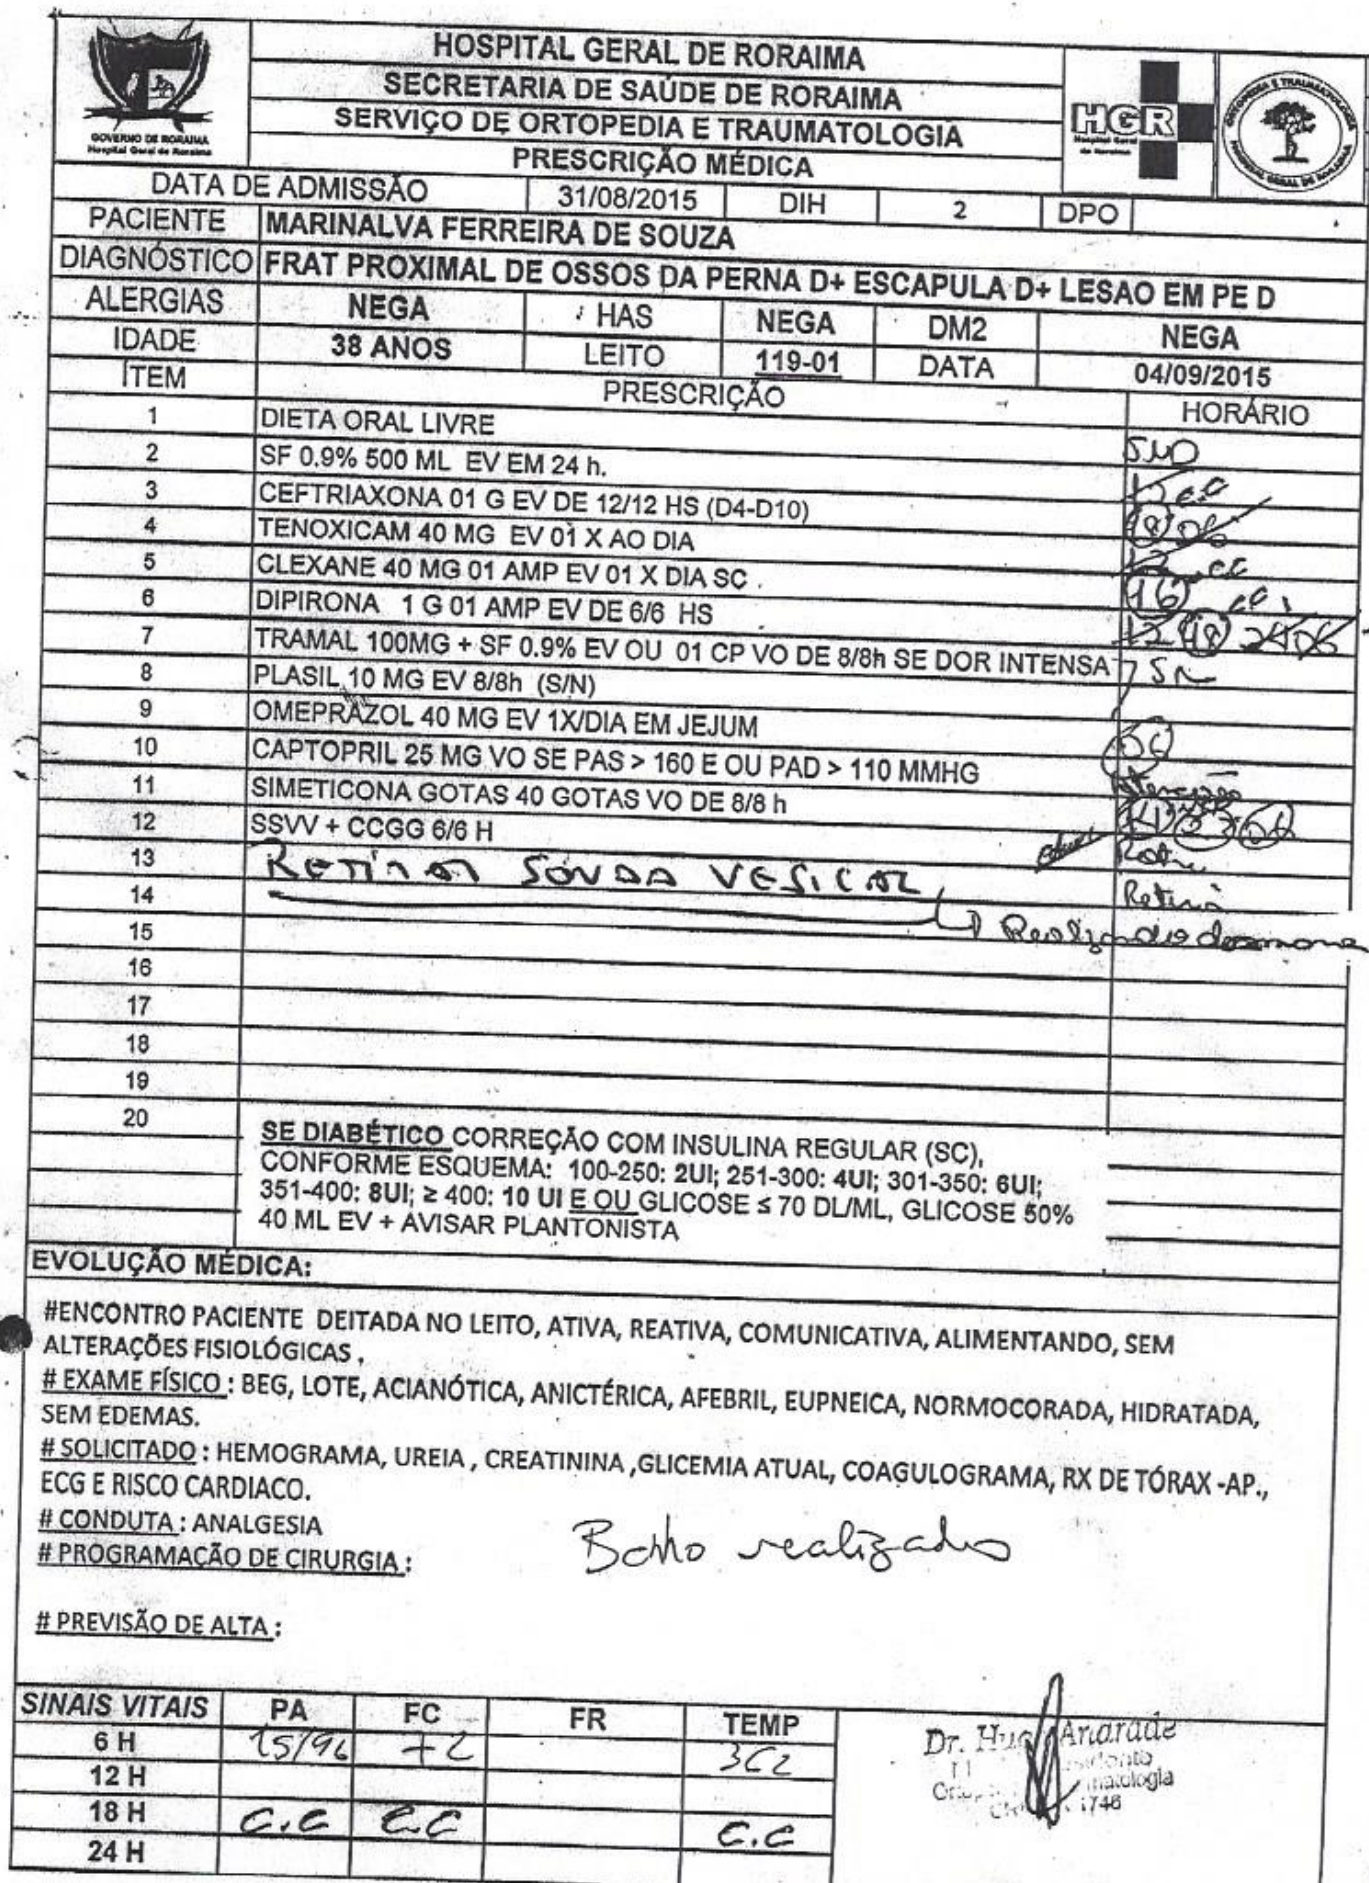 HOSPITAL GERAL DE RORAIMA
SECRETARIA DE SAÚDE DE RORAIMA
SERVIÇO DE ORTOPEDIA E TRAUMATOLOGIA
PRESCRIÇÃO MÉDICA
GOVERNO DE RORAIMA
Hospital Geral de Roraima
HGR
Hospital Geral
de Roraima
ORTOPEDIA E TRAUMATOLOGIA
HOSPITAL GERAL DE RORAIMA
DATA DE ADMISSÃO 31/08/2015 DIH 2 DPO
PACIENTE MARINALVA FERREIRA DE SOUZA
DIAGNÓSTICO FRAT PROXIMAL DE OSSOS DA PERNA D+ ESCAPULA D+ LESAO EM PE D
ALERGIAS NEGA HAS NEGA DM2 NEGA
IDADE 38 ANOS LEITO 119-01 DATA 04/09/2015
ÍTEM PRESCRIÇÃO HORÁRIO
1 DIETA ORAL LIVRE SND
2 SF 0.9% 500 ML EV EM 24 h.
3 CEFTRIAXONA 01 G EV DE 12/12 HS (D4-D10) 18 06
4 TENOXICAM 40 MG EV 01 X AO DIA
5 CLEXANE 40 MG 01 AMP EV 01 X DIA SC . 16
6 DIPIRONA 1 G 01 AMP EV DE 6/6 HS 12 18 24 06
7 TRAMAL 100MG + SF 0.9% EV OU 01 CP VO DE 8/8h SE DOR INTENSA SN
8 PLASIL 10 MG EV 8/8h (S/N)
9 OMEPRAZOL 40 MG EV 1X/DIA EM JEJUM 06
10 CAPTOPRIL 25 MG VO SE PAS > 160 E OU PAD > 110 MMHG
11 SIMETICONA GOTAS 40 GOTAS VO DE 8/8 h
12 SSVV + CCGG 6/6 H
13 RETIRAR SONDA VESICAL
14
15
16
17
18
19
20
SE DIABÉTICO CORREÇÃO COM INSULINA REGULAR (SC),
CONFORME ESQUEMA: 100-250: 2UI; 251-300: 4UI; 301-350: 6UI;
351-400: 8UI; ≥ 400: 10 UI E OU GLICOSE ≤ 70 DL/ML, GLICOSE 50%
40 ML EV + AVISAR PLANTONISTA
EVOLUÇÃO MÉDICA:
#ENCONTRO PACIENTE DEITADA NO LEITO, ATIVA, REATIVA, COMUNICATIVA, ALIMENTANDO, SEM
ALTERAÇÕES FISIOLÓGICAS ,
# EXAME FÍSICO : BEG, LOTE, ACIANÓTICA, ANICTÉRICA, AFEBRIL, EUPNEICA, NORMOCORADA, HIDRATADA,
SEM EDEMAS.
# SOLICITADO : HEMOGRAMA, UREIA , CREATININA ,GLICEMIA ATUAL, COAGULOGRAMA, RX DE TÓRAX -AP.,
ECG E RISCO CARDIACO.
# CONDUTA : ANALGESIA
# PROGRAMAÇÃO DE CIRURGIA :
Banho realizado
# PREVISÃO DE ALTA :
SINAIS VITAIS PA FC FR TEMP
6 H 15/96 72 362
12 H
18 H C.C C.C C.C
24 H
Dr. Hugo Andrade
1746